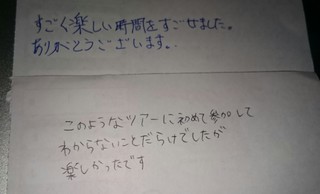 すごく楽しい時間をすごせました。
ありがとうございます。
このようなツアーに初めて参加して
わからないことだらけでしたが
楽しかったです